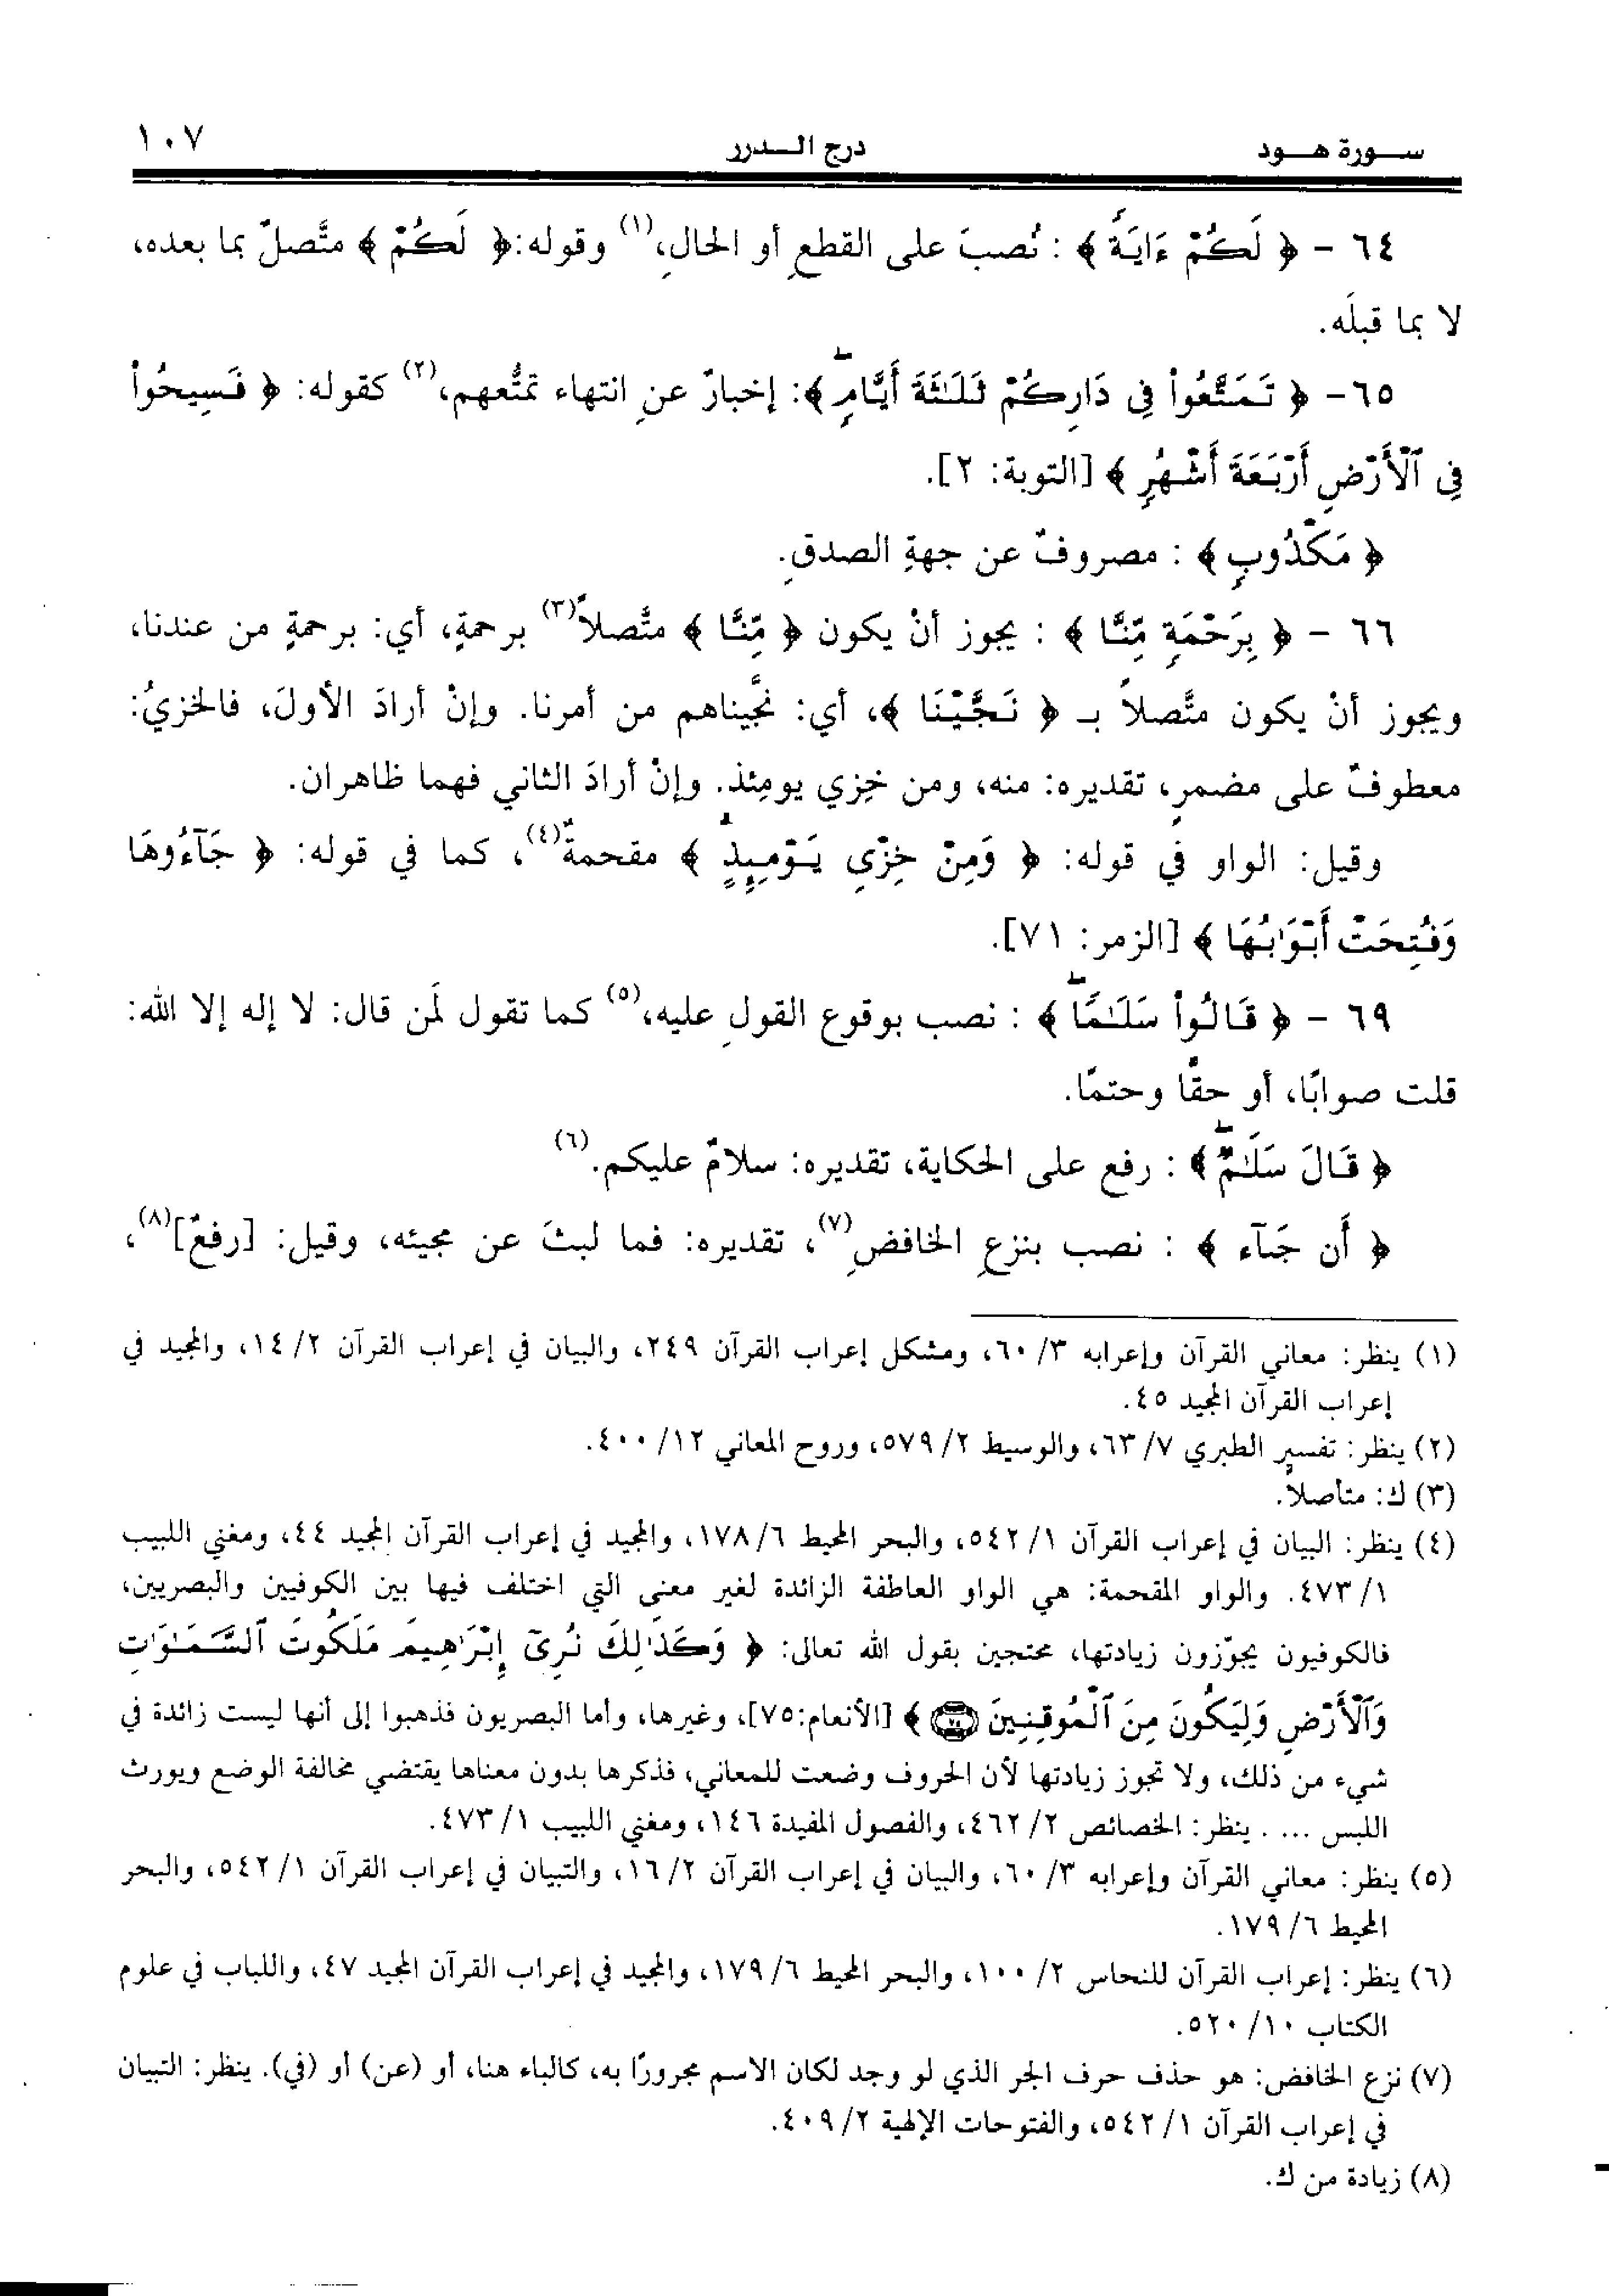 سورة هود درج الدرر ١٠٧
٦٤ - ﴿ لَكُمْ ءَايَةً ﴾ : نُصبَ على القطعِ أو الحالِ،(١) وقوله:﴿ لَكُمْ ﴾ متَّصلٌ بما بعده،
لا بما قبلَه.
٦٥- ﴿ تَمَتَّعُواْ فِى دَارِكُمْ ثَلَـٰثَةَ أَيَّامٍ ﴾: إخبارٌ عنِ انتهاء تمتُّعهم،(٢) كقوله: ﴿ فَسِيحُواْ
فِى ٱلْأَرْضِ أَرْبَعَةَ أَشْهُرٍ ﴾ [التوبة: ٢].
﴿ مَكْذُوبٍ ﴾ : مصروفٌ عن جهةِ الصدقِ.
٦٦ - ﴿ بِرَحْمَةٍ مِّنَّا ﴾ : يجوز أنْ يكون ﴿ مِّنَّا ﴾ متَّصلاً(٣) برحمةٍ، أي: برحمةٍ من عندنا،
ويجوز أنْ يكون متَّصلاً بـ ﴿ نَجَّيْنَا ﴾، أي: نجَّيناهم من أمرنا. وإنْ أرادَ الأولَ، فالخزيُ:
معطوفٌ على مضمرٍ، تقديره: منه، ومن خِزي يومِئذ. وإنْ أرادَ الثاني فهما ظاهران.
وقيل: الواو في قوله: ﴿ وَمِنْ خِزْىِ يَوْمِئِذٍ ﴾ مقحمةٌ(٤)، كما في قوله: ﴿ جَآءُوهَا
وَفُتِحَتْ أَبْوَٰبُهَا ﴾ [الزمر: ٧١].
٦٩ - ﴿ قَالُواْ سَلَـٰمًا ﴾ : نصب بوقوع القولِ عليه،(٥) كما تقول لمَن قال: لا إله إلا الله:
قلت صوابًا، أو حقًّا وحتمًا.
﴿ قَالَ سَلَـٰمٌ ﴾ : رفع على الحكاية، تقديره: سلامٌ عليكم.(٦)
﴿ أَن جَآء ﴾ : نصب بنزعِ الخافضِ(٧)، تقديره: فما لبثَ عن مجيئه، وقيل: [رفعٌ](٨)،
(١) ينظر: معاني القرآن وإعرابه ٣/ ٦٠، ومشكل إعراب القرآن ٢٤٩، والبيان في إعراب القرآن ٢/ ١٤، والمجيد في
إعراب القرآن المجيد ٤٥.
(٢) ينظر: تفسير الطبري ٧/ ٦٣، والوسيط ٢/ ٥٧٩، وروح المعاني ١٢/ ٤٠٠.
(٣) ك: متأصلاً.
(٤) ينظر: البيان في إعراب القرآن ١/ ٥٤٢، والبحر المحيط ٦/ ١٧٨، والمجيد في إعراب القرآن المجيد ٤٤، ومغني اللبيب
١/ ٤٧٣. والواو المقحمة: هي الواو العاطفة الزائدة لغير معنى التي اختلف فيها بين الكوفيين والبصريين،
فالكوفيون يجوّزون زيادتها، محتجين بقول الله تعالى: ﴿ وَكَذَٰلِكَ نُرِىٓ إِبْرَٰهِيمَ مَلَكُوتَ ٱلسَّمَـٰوَٰتِ
وَٱلْأَرْضِ وَلِيَكُونَ مِنَ ٱلْمُوقِنِينَ ﴾ [الأنعام:٧٥]، وغيرها، وأما البصريون فذهبوا إلى أنها ليست زائدة في
شيء من ذلك، ولا تجوز زيادتها لأن الحروف وضعت للمعاني، فذكرها بدون معناها يقتضي مخالفة الوضع ويورث
اللبس ... . ينظر: الخصائص ٢/ ٤٦٢، والفصول المفيدة ١٤٦، ومغني اللبيب ١/ ٤٧٣.
(٥) ينظر: معاني القرآن وإعرابه ٣/ ٦٠، والبيان في إعراب القرآن ٢/ ١٦، والتبيان في إعراب القرآن ١/ ٥٤٢، والبحر
المحيط ٦/ ١٧٩.
(٦) ينظر: إعراب القرآن للنحاس ٢/ ١٠٠، والبحر المحيط ٦/ ١٧٩، والمجيد في إعراب القرآن المجيد ٤٧، واللباب في علوم
الكتاب ١٠/ ٥٢٠.
(٧) نزع الخافض: هو حذف حرف الجر الذي لو وجد لكان الاسم مجرورًا به، كالباء هنا، أو (عن) أو (في). ينظر: التبيان
في إعراب القرآن ١/ ٥٤٢، والفتوحات الإلهية ٢/ ٤٠٩.
(٨) زيادة من ك.